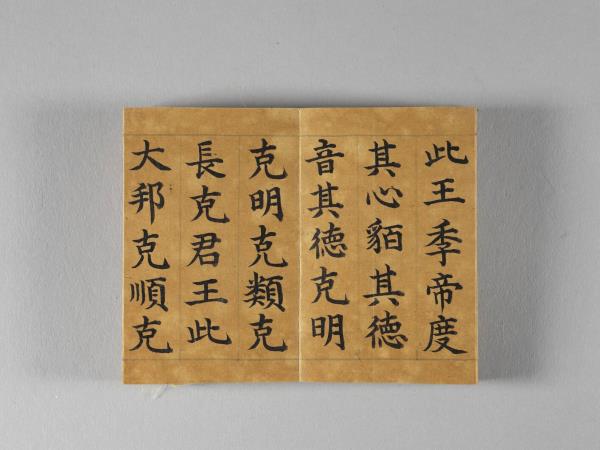 此王季帝度
其心貊其德
音其德克明
克明克類克
長克君王此
大邦克順克